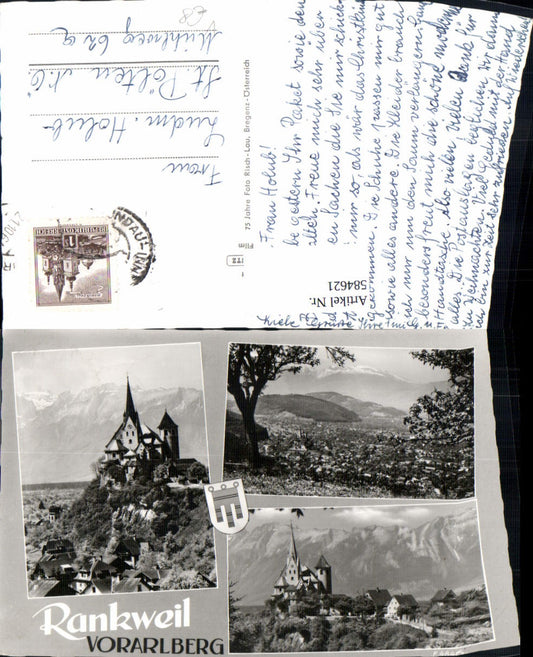 Frau Holub!
bekam gestern Ihr Paket sowie den
Freue mich sehr über
en Sachen die Sie mir schickten
mir so, als wär das Christkind
gekommen. Die Schuhe passen mir gut
sowie alles andere. Die Kleider brauch
ich mir nur den Saum verlängern.
besonders freut mich die schöne moderne
Handtasche. Also vielen vielen Dank für
alles. Die Postauslagen begleiche ich dann
zu Weihnachten. Viel Geduld mit der Hand
bin zur Zeit sehr zufrieden
Viele Grüße Ihre
Artikel Nr.
584621
Film
172
75 Jahre Foto Risch-Lau, Bregenz-Österreich
Frau
Ludm. Holub
St. Pölten N.Ö.
Mühlweg 67a
REPUBLIK ÖSTERREICH
Rankweil
VORARLBERG